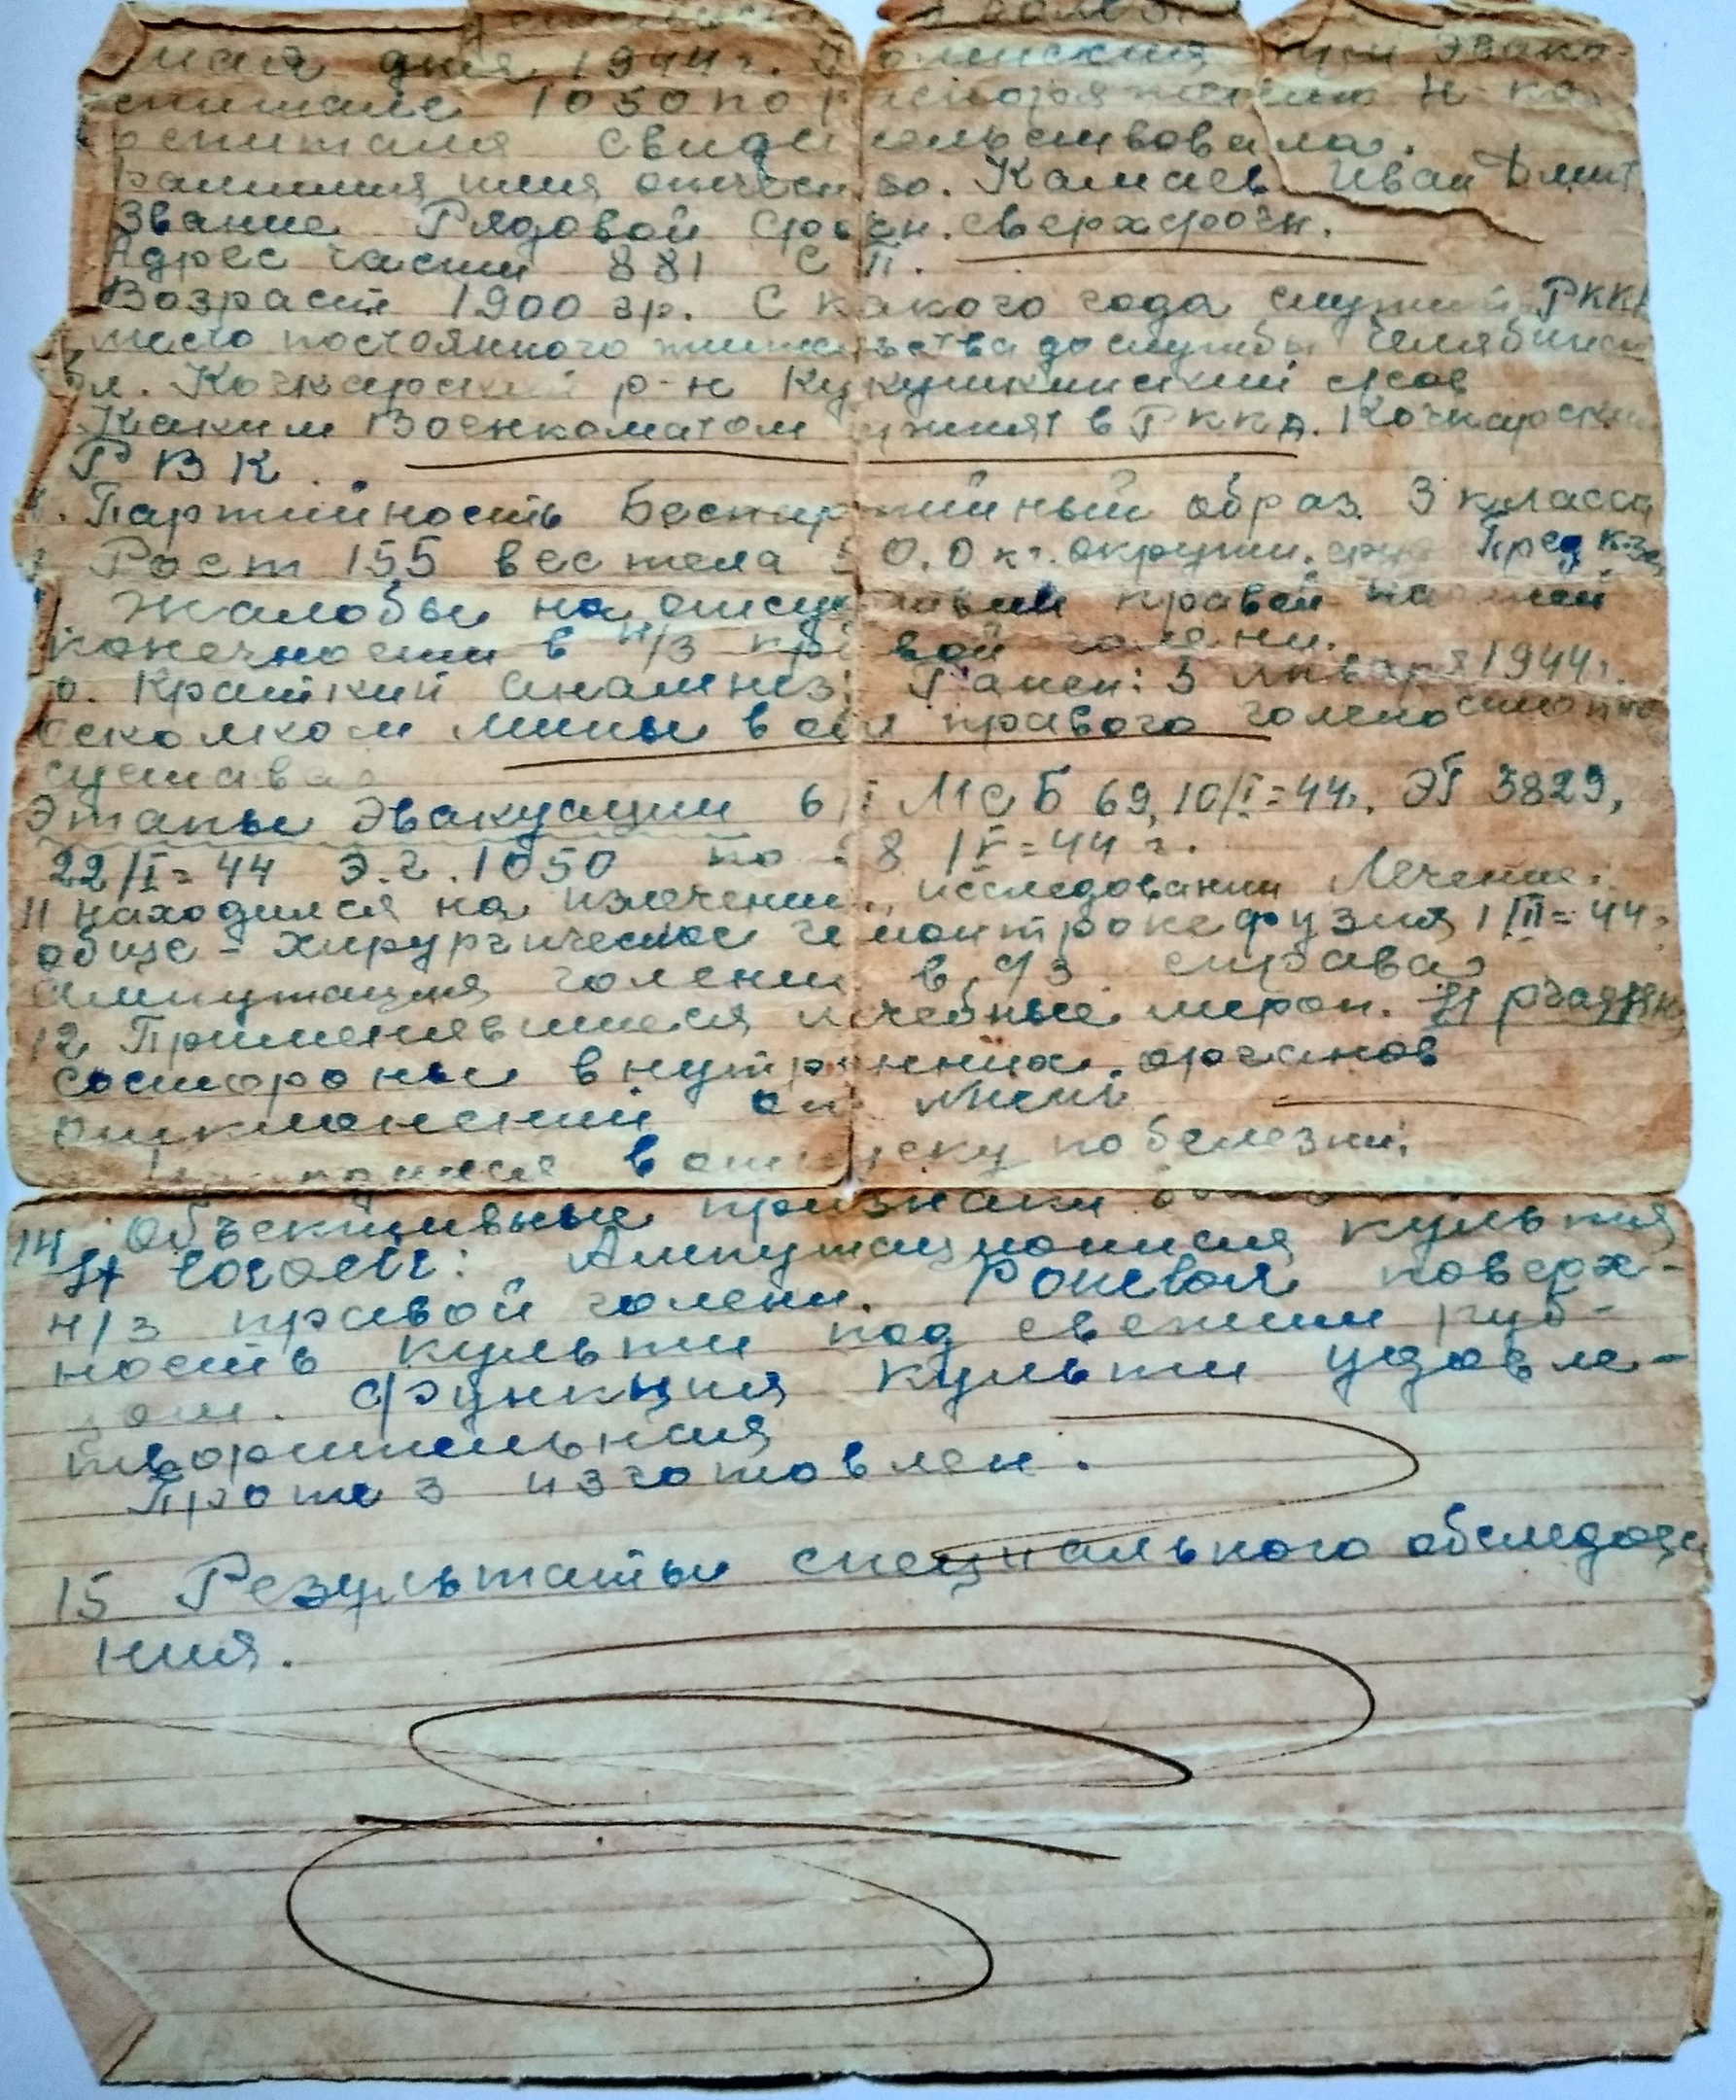 мая дня 1944 г. при эвако-
спитале 1050 по распоряжению Н-ка
госпиталя Свидетельствовала.
Фамилия имя отчество. Камаев Иван Дмит.
Звание Рядовой срочн. сверхсрочн.
Адрес части 881 СП.
Возраст 1900 гр. С какого года служит РККА
место постоянного жительства до службы Челябинск
бл. Кочкарский р-н Кукушкинский с/сов
Каким Военкоматом принят в РККА. Кочкарским
РВК.
Партийность Беспартийный образ. 3 класса
Рост 155 вес тела 50.0 кг. окружн. груд
Жалобы на отсутствие правой нижней
конечности в н/3 правой голени.
Краткий анамнез: Ранен: 5 января 1944 г.
осколком мины в обл правого голеностопного
сустава
Этапы Эвакуации 6/I МСБ 69, 10/I=44. ЭГ 3829,
22/I=44 Э.Г. 1050 по 8/V=44 г.
11 находился на излечении, исследовании Лечение:
обще-хирургическое гемонтрансфузия 1/II=44 г
Ампутация голени в с/3 справа
12 Применявшиеся лечебные мероп.
состороны внутренних органов
отклонений от нет
в отпуску по болезни.
14 Объективные признаки
Ампутационная культя
н/3 правой голени. Раневая поверх-
ность культи под свежим руб-
цом. Функция культи удовле-
творительная
Протез изготовлен.
15 Результаты специального обследова
ния.